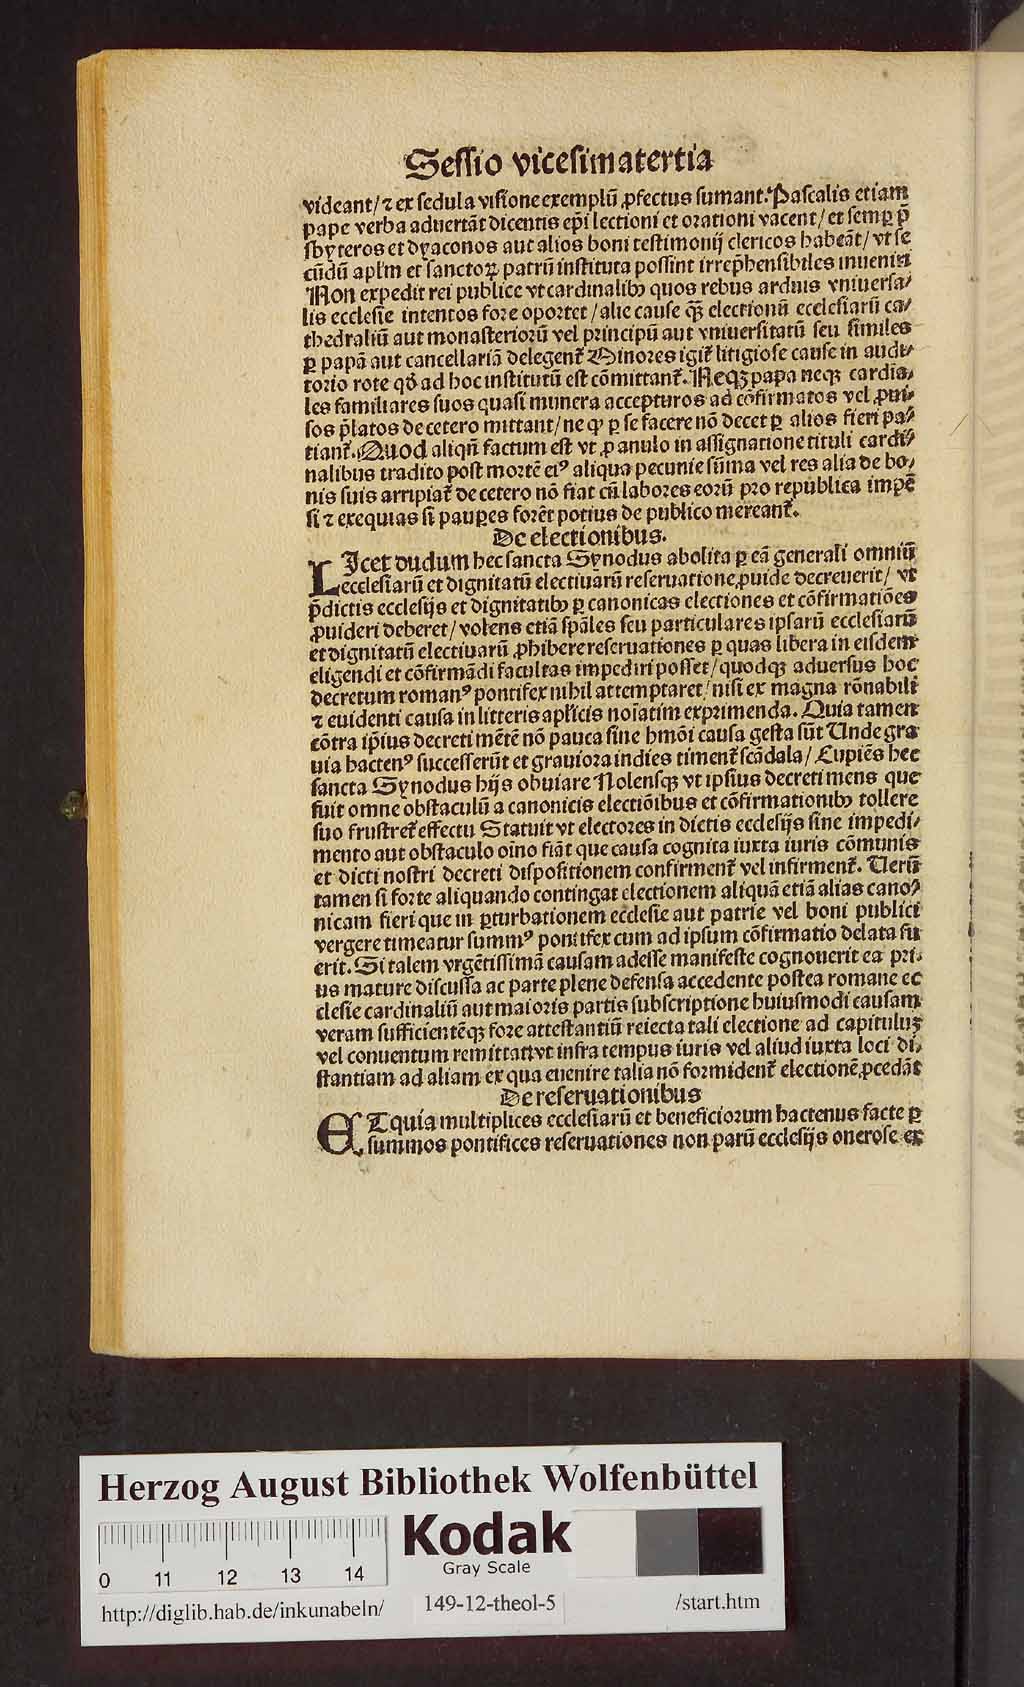 Sessio vicesimatertia
videant/ ⁊ ex sedula visione exemplū ꝓfectus sumant. Pascalis etiam
pape verba aduertāt dicentis ep̄i lectioni et orationi vacent/ et semꝑ p̄
sbyteros et dyaconos aut alios boni testimonij clericos habeāt/ vt se
cūdū apl̄m et sanctoꝝ patrū instituta possint irrep̄hensibiles inueniri
Non expedit rei publice vt cardinalibꝫ quos rebus arduis vniuersa⸗
lis ecclesie intentos fore oportet/ alie cause qꝫ̄ electionū ecclesiarū ca⸗
thedraliū aut monasteriorū vel principū aut vniuersitatū seu similes
ꝑ papā aut cancellariā delegent᷑ Minores igit᷑ litigiose cause in audi⸗
torio rote qd̄ ad hoc institutū est cōmittant᷑. Neqꝫ papa neqꝫ cardia⸗
les familiares suos quasi munera accepturos ad cōfirmatos vel ꝓui⸗
sos p̄latos de cetero mittant/ ne qꝫ ꝑ se facere nō decet ꝑ alios fieri pa⸗
tiant᷑. Quod aliqn̄ factum est vt ꝓ anulo in assignatione tituli cardi⸗
nalibus tradito post mortē eiꝰ aliqua pecunie sūma vel res alia de bo⸗
nis suis arripiat᷑ de cetero nō fiat cū labores eorū pro republica impē
si ⁊ exequias si pauꝑes forēt potius de publico mereant᷑.
De electionibus.
LIcet dudum hec sancta Synodus abolita ꝑ eā generali omniū
ecclesiarū et dignitatū electiuarū reseruatione ꝓuide decreuerit/ vt
p̄dictis ecclesijs et dignitatibꝫ ꝑ canonicas electiones et cōfirmatiōes
ꝓuideri deberet/ volens etiā sp̄ales seu particulares ipsarū ecclesiarū
et dignitatū electiuarū ꝓhibere reseruationes ꝑ quas libera in eisdem
eligendi et cōfirmādi facultas impediri posset/ quodqꝫ aduersus hoc
decretum romanꝰ pontifex nihil attemptaret/ nisi ex magna rōnabili
⁊ euidenti causa in litteris apl̄icis noīatim exprimenda. Quia tamen
cōtra ip̄ius decreti mētē nō pauca sine hmōi causa gesta sūt Unde gra
uia hactenꝰ successerūt et grauiora indies timent᷑ scādala/ Cupiēs hec
sancta Synodus hijs obuiare Nolensqꝫ vt ipsius decreti mens que
fuit omne obstaculū a canonicis electiōibus et cōfirmationibꝫ tollere
suo frustret᷑ effectu Statuit vt electores in dictis ecclesijs sine impedi⸗
mento aut obstaculo oīno fiāt que causa cognita iuxta iuris cōmunis
et dicti nostri decreti dispositionem confirment᷑ vel infirment᷑. Uerū
tamen si forte aliquando contingat electionem aliquā etiā alias cano⸗
nicam fieri que in ꝑturbationem ecclesie aut patrie vel boni publici
vergere timeatur summꝰ pontifex cum ad ipsum cōfirmatio delata fu
erit. Si talem vrgētissimā causam adesse manifeste cognouerit ea pri⸗
us mature discussa ac parte plene defensa accedente postea romane ec
clesie cardinaliū aut maioris partis subscriptione huiusmodi causam
veram sufficientēqꝫ fore attestantiū reiecta tali electione ad capituluꝫ
vel conuentum remittat vt infra tempus iuris vel aliud iuxta loci di⸗
stantiam ad aliam ex qua euenire talia nō formident᷑ electionē ꝓcedāt
De reseruationibus
ET quia multiplices ecclesiarū et beneficiorum hactenus facte ꝑ
summos pontifices reseruationes non parū ecclesijs onerose ex
Herzog August Bibliothek Wolfenbüttel
Kodak
Gray Scale
0 11 12 13 14
http://diglib.hab.de/inkunabeln/ 149-12-theol-5 /start.htm